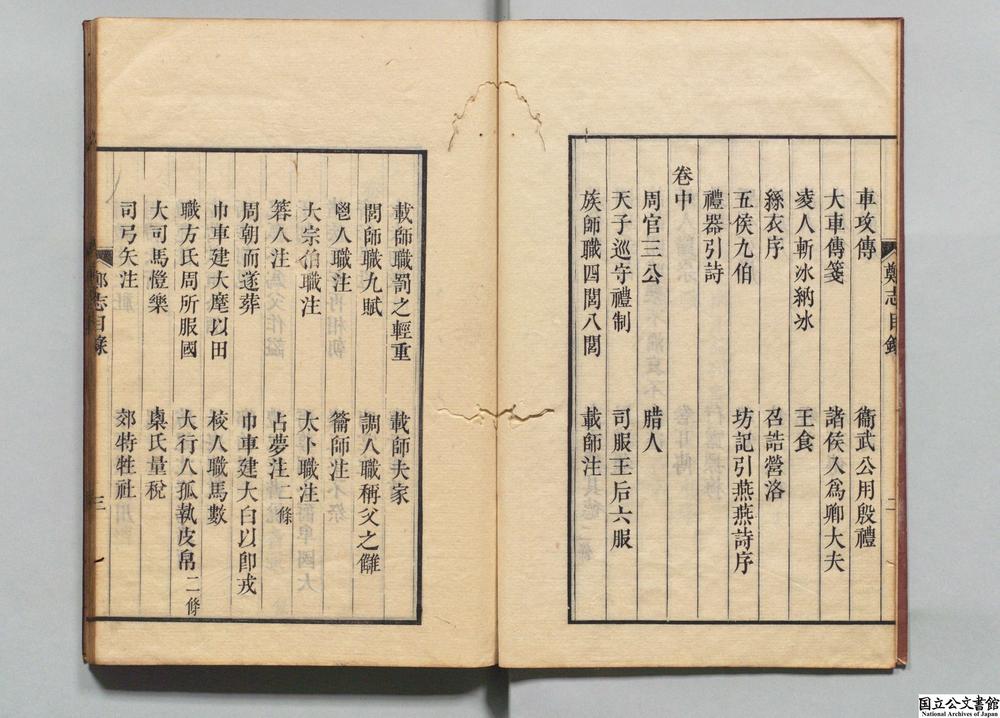 車攻傳 衞武公用殷禮
大車傳箋 諸侯入爲卿大夫
凌人斬冰納冰 王食
絲衣序 召誥營洛
五侯九伯 坊記引燕燕詩序
禮器引詩
卷中
周官三公 腊人
天子巡守禮制 司服王后六服
族師職四閭八閭 載師注
鄭志目錄 二
載師職罰之輕重 載師夫家
閭師職九賦 調人職稱父之讎
鬯人職注 籥師注
大宗伯職注 太卜職注
簭人注 占夢注二條
周朝而遂葬 巾車建大白以卽戎
巾車建大麾以田 校人職馬數
職方氏周所服國 大行人孤執皮帛二條
大司馬愷樂 㮚氏量稅
司弓矢注 郊特牲社
鄭志目錄 三
国立公文書館
National Archives of Japan